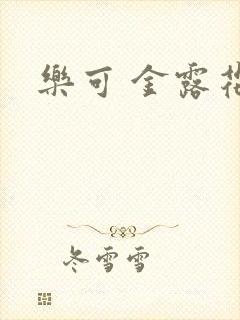 樂可 金露花
冬雪雪